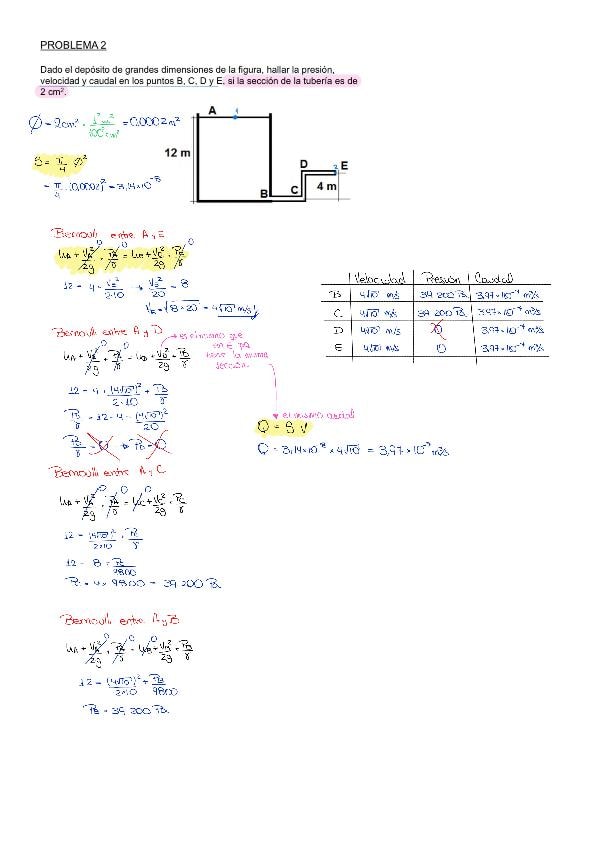 PROBLEMA 2
Dado el depósito de grandes dimensiones de la figura, hallar la presión,
velocidad y caudal en los puntos B, C, D y E, si la sección de la tubería es de
2 cm².
Ø = 2cm² · 1² m² / 100² cm² = 0,0002 m²
S = π/4 Ø²
= π/4 · (0,0002)² = 3,14×10⁻⁸
A 1
12 m
B
C
D
2 E
4 m
Bernoulli entre A y E
hA + VA²/2g + PA/γ = hE + VE²/2g + PE/γ
0 0 0
12 = 4 + VE²/2·10 → VE²/20 = 8
VE = √8×20 = 4√10 m/s
Bernoulli entre A y D
→ es el mismo que
en E pq
tiene la misma
sección.
hA + VA²/2g + PA/γ = hD + VD²/2g + PD/γ
0 0
12 = 4 + (4√10)²/2·10 + PD/γ
PD/γ = 12 - 4 - (4√10)²/20
PD/γ = 0 → PD = 0
→ el mismo caudal
Q = S · V
Q = 3,14×10⁻⁸ × 4√10 = 3,97×10⁻⁷ m³/s
Bernoulli entre A y C
hA + VA²/2g + PA/γ = hC + VC²/2g + PC/γ
0 0 0
12 = (4√10)²/2×10 + PC/γ
12 - 8 = PC/9800
PC = 4 × 9800 = 39 200 Pa
Bernoulli entre A y B
hA + VA²/2g + PA/γ = hB + VB²/2g + PB/γ
0 0 0
12 = (4√10)²/2×10 + PB/9800
PB = 39 200 Pa
Velocidad Presión Caudal
B 4√10 m/s 39 200 Pa 3,97×10⁻⁷ m³/s
C 4√10 m/s 39 200 Pa 3,97×10⁻⁷ m³/s
D 4√10 m/s 3,97×10⁻⁷ m³/s
E 4√10 m/s 0 3,97×10⁻⁷ m³/s